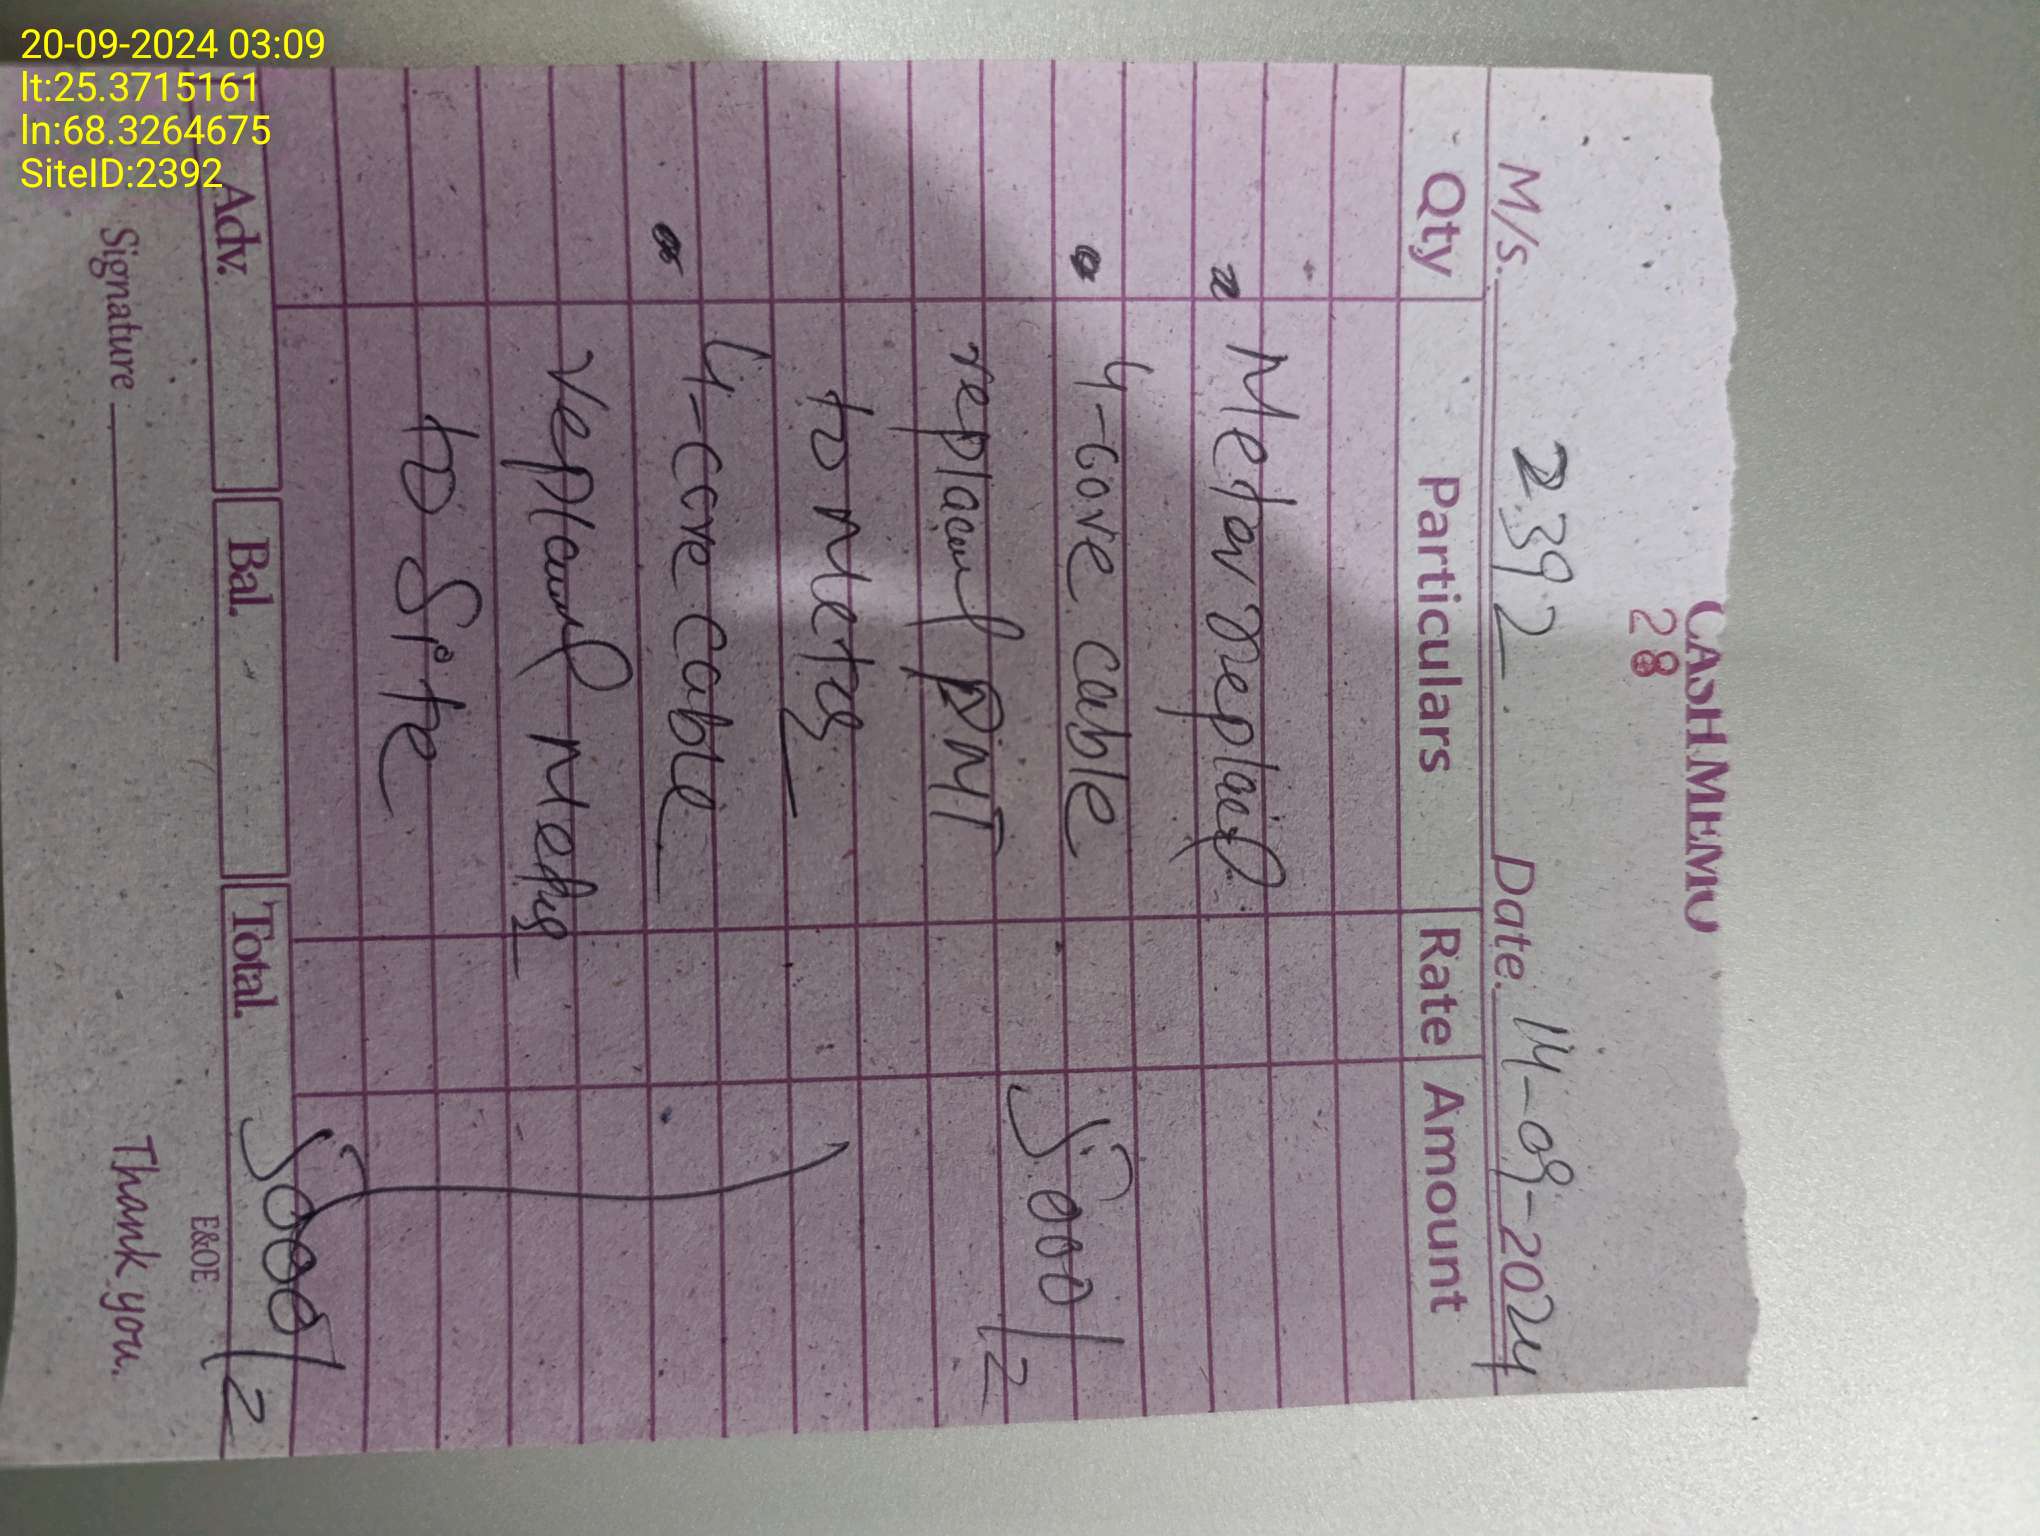 20-09-2024 03:09
lt:25.3715161
ln:68.3264675
SiteID:2392
CASH MEMO
28
M/s. 2392. Date. 14-09-2024
Qty Particulars Rate Amount
Meter replaced
4-core cable 5000/=
replaced PMT
to Meter
4-core cable
replaced Meter
to Site
Adv. Bal. Total. 5000/=
E&OE
Signature Thank you.